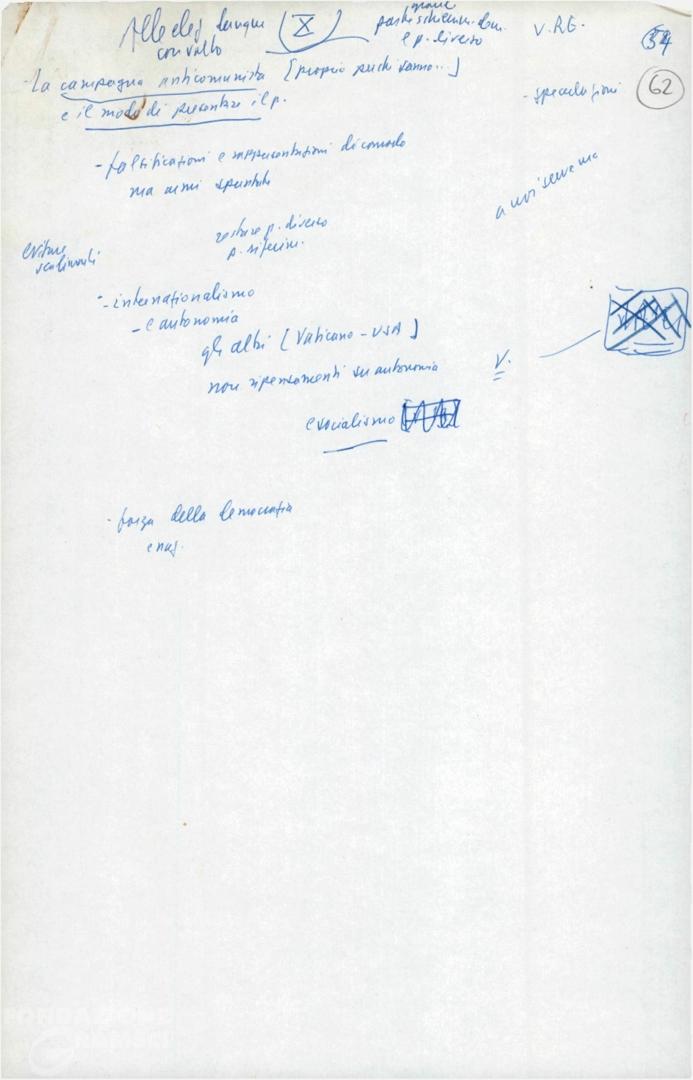 Alle elez. dunque
con volto
X
nome
e p. diverso
V. RE.
54
62
- La campagna anticomunista [proprio perché sanno...]
e il modo di presentare il p.
- speculazioni
- falsificazioni e rappresentazioni di comodo
ma armi spuntate
a noi serve ma
restare p. diverso
p. riferim.
evitare
- internazionalismo
- e autonomia
gli altri [Vaticano - USA]
non ripensamenti su autonomia
V.
e socialismo
- forza della democrazia
e naz.
FONDAZIONE
GRAMSCI